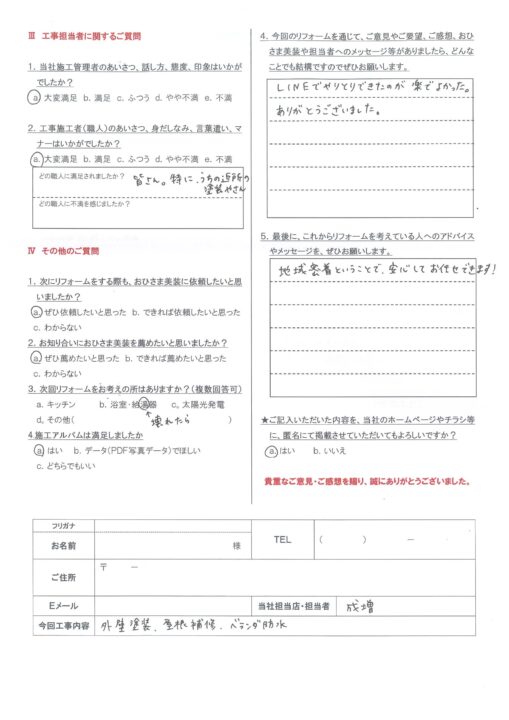 Ⅲ 工事担当者に関するご質問
1. 当社施工管理者のあいさつ、話し方、態度、印象はいかが
でしたか?
a. 大変満足 b. 満足 c. ふつう d. やや不満 e. 不満
2. 工事施工者(職人)のあいさつ、身だしなみ、言葉遣い、マ
ナーはいかがでしたか?
a. 大変満足 b. 満足 c. ふつう d. やや不満 e. 不満
どの職人に満足されましたか?
皆さん。特に、うちの近所の
塗装やさん
どの職人に不満を感じましたか?
Ⅳ その他のご質問
1. 次にリフォームをする際も、おひさま美装に依頼したいと思
いましたか?
a. ぜひ依頼したいと思った b. できれば依頼したいと思った
c. わからない
2. お知り合いにおひさま美装を薦めたいと思いましたか?
a. ぜひ薦めたいと思った b. できれば薦めたいと思った
c. わからない
3. 次回リフォームをお考えの所はありますか?(複数回答可)
a. キッチン b. 浴室・給湯器 c. 太陽光発電
d. その他( )
壊れたら
4.施工アルバムは満足しましたか
a. はい b. データ(PDF写真データ)でほしい
c. どちらでもいい
4. 今回のリフォームを通じて、ご意見やご要望、ご感想、おひ
さま美装や担当者へのメッセージ等がありましたら、どんな
ことでも結構ですのでぜひお願いします。
LINEでやりとりできたのが楽でよかった。
ありがとうございました。
5. 最後に、これからリフォームを考えている人へのアドバイス
やメッセージを、ぜひお願いします。
地域密着ということで、安心してお任せできます!
★ご記入いただいた内容を、当社のホームページやチラシ等
に、匿名にて掲載させていただいてもよろしいですか?
a. はい b. いいえ
貴重なご意見・ご感想を賜り、誠にありがとうございました。
フリガナ
お名前 様 TEL ( ) ー
ご住所 〒 ー
Eメール 当社担当店・担当者 成増
今回工事内容 外壁塗装、屋根補修、ベランダ防水